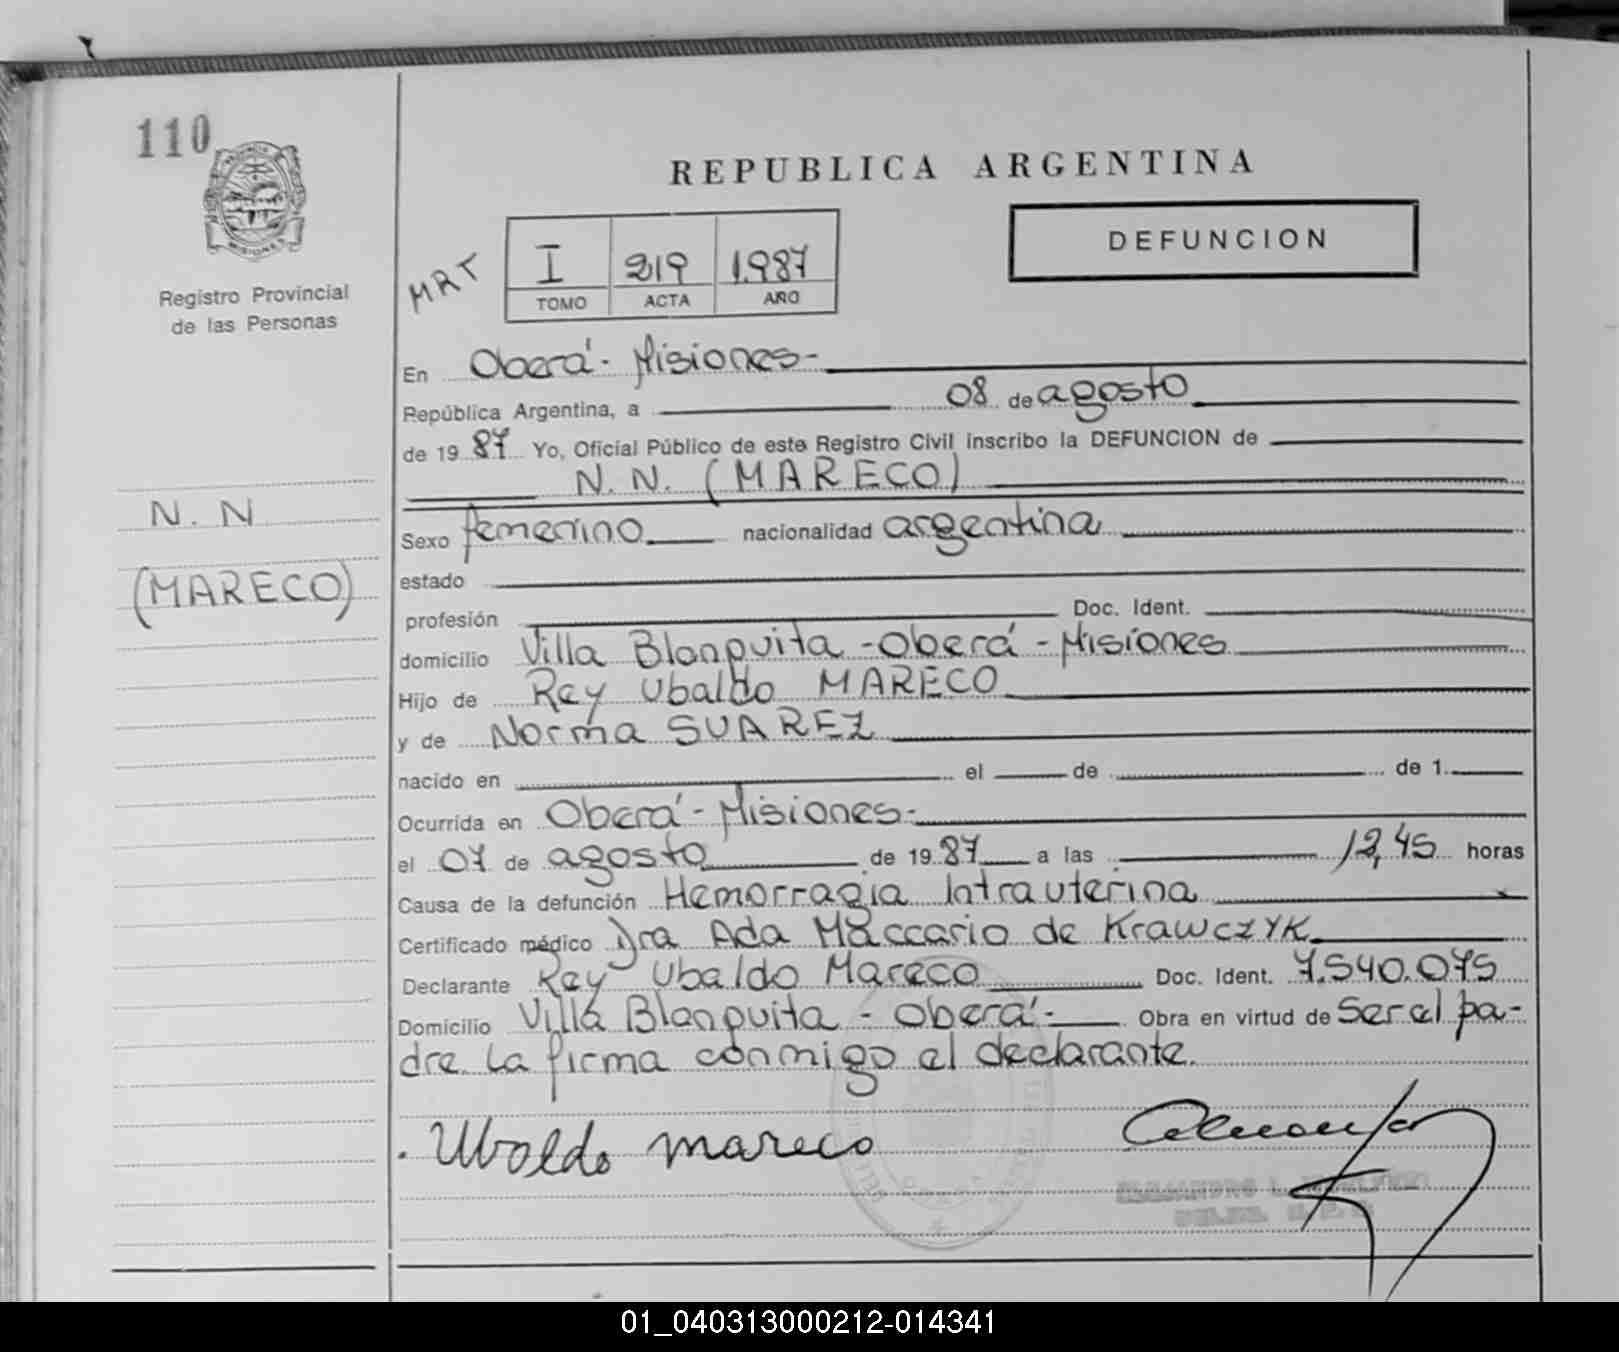 110
PROVINCIA
MISIONES
Registro Provincial
de las Personas
REPUBLICA ARGENTINA
DEFUNCION
MRT
I 219 1.987
TOMO ACTA AÑO
En Oberá - Misiones -
República Argentina, a 08 de agosto
de 19 87 Yo, Oficial Público de este Registro Civil inscribo la DEFUNCION de
N. N. (MARECO)
N. N
(MARECO)
Sexo femenino nacionalidad argentina
estado
profesión Doc. Ident.
domicilio Villa Blanquita - Oberá - Misiones
Hijo de Rey Ubaldo MARECO
y de Norma SUAREZ
nacido en el de de 1.
Ocurrida en Oberá - Misiones -
el 07 de agosto de 19 87 a las 12,45 horas
Causa de la defunción Hemorragia Intrauterina
Certificado médico Dra Ada Maccario de Krawczyk
Declarante Rey Ubaldo Mareco Doc. Ident. 7.540.075
Domicilio Villa Blanquita - Oberá - Obra en virtud de ser el pa-
dre. La firma conmigo el declarante.
Ubaldo mareco
01_040313000212-014341